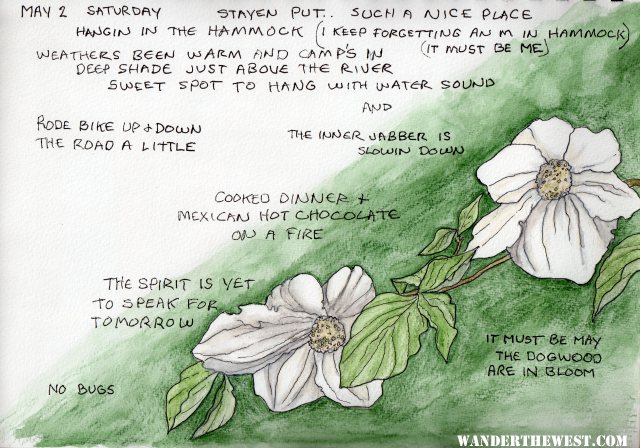 MAY 2 SATURDAY STAYEN PUT.. SUCH A NICE PLACE
HANGIN IN THE HAMMOCK (I KEEP FORGETTING AN M IN HAMMOCK)
(IT MUST BE ME)
WEATHERS BEEN WARM AND CAMP'S IN
DEEP SHADE JUST ABOVE THE RIVER
SWEET SPOT TO HANG WITH WATER SOUND
AND
RODE BIKE UP + DOWN
THE ROAD A LITTLE
THE INNER JABBER IS
SLOWIN DOWN
COOKED DINNER +
MEXICAN HOT CHOCOLATE
ON A FIRE
THE SPIRIT IS YET
TO SPEAK FOR
TOMORROW
IT MUST BE MAY
THE DOGWOOD
ARE IN BLOOM
NO BUGS
WANDERTHEWEST.COM